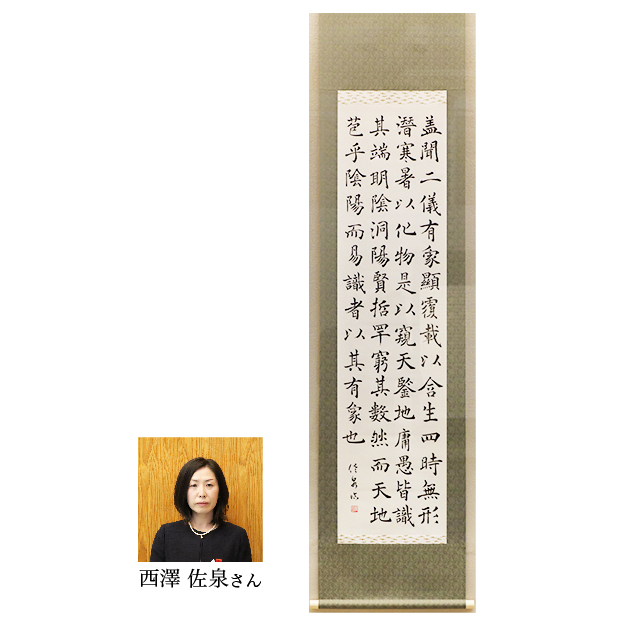 盖聞二儀有象顯覆載以含生四時無形
潛寒暑以化物是以窺天鑒地庸愚皆識
其端明陰洞陽賢哲罕窮其數然而天地
苞乎陰陽而易識者以其有象也
西澤 佐泉さん